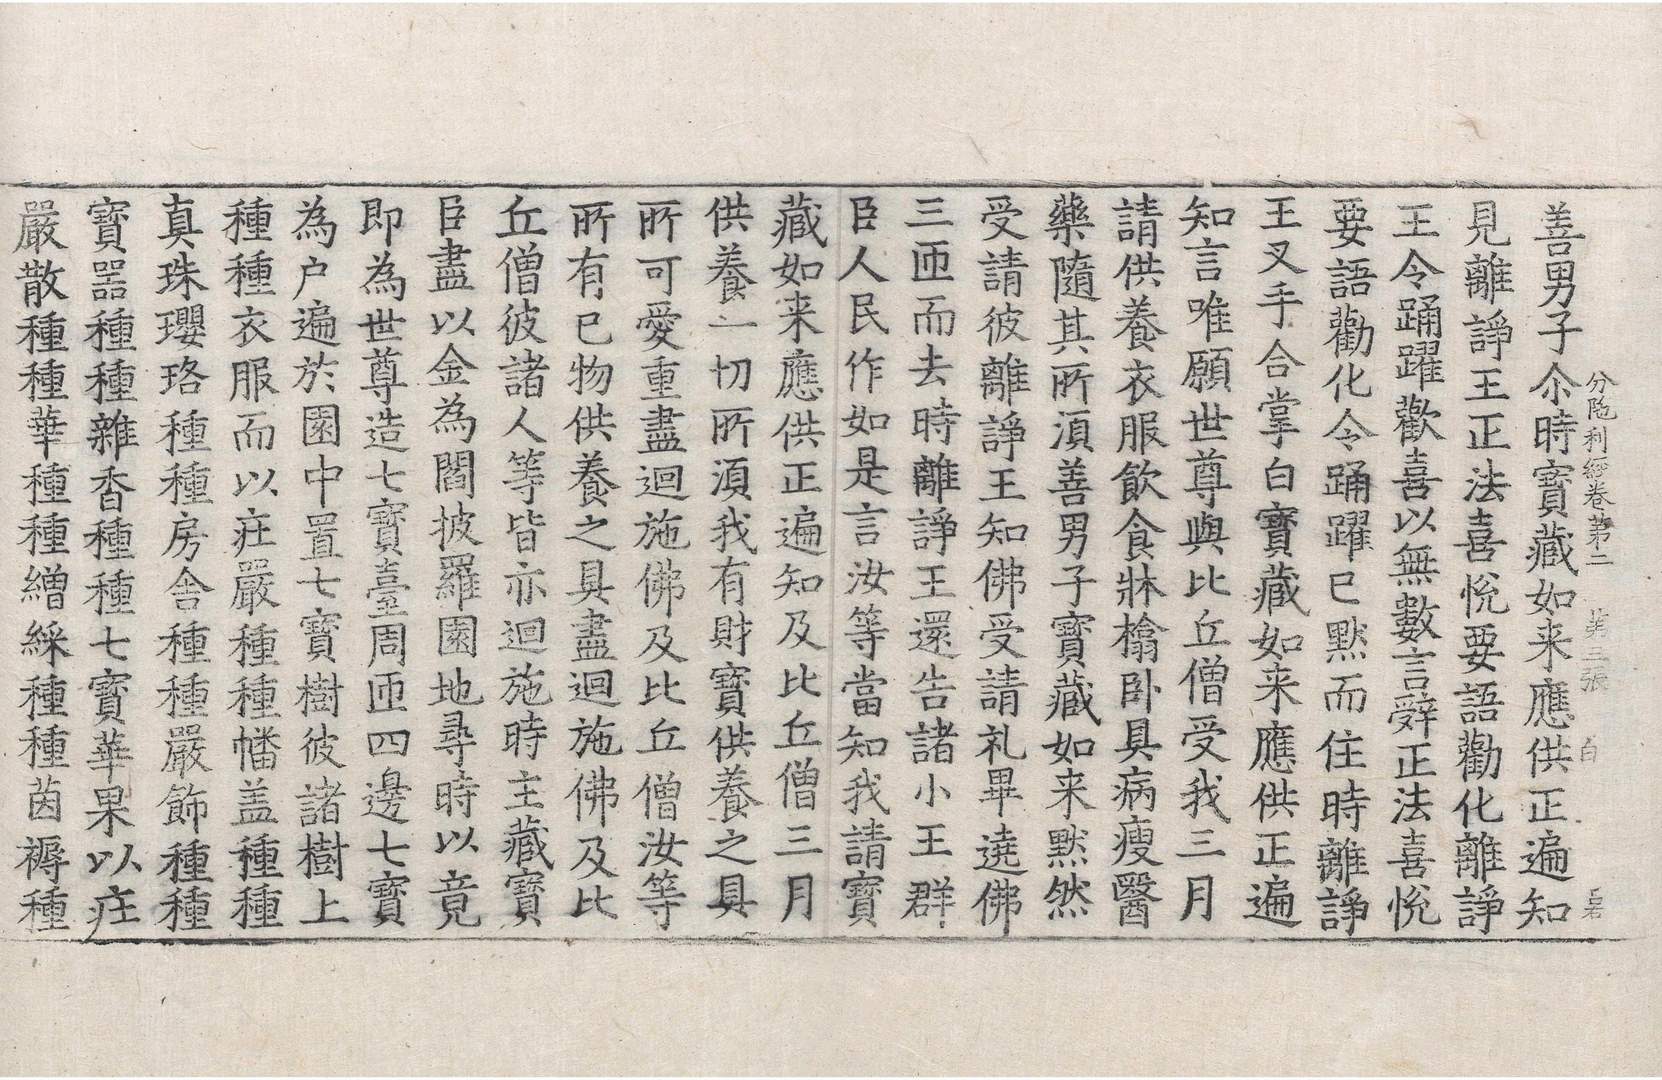 分陁利經卷第二 第三張 白
善男子尒時寳藏如来應供正遍知
見離諍王正法喜悅要語勸化離諍
王令踊躍歡喜以無數言辝正法喜悅
要語勸化令踊躍巳黙而住時離諍
王叉手合掌白寳藏如来應供正遍
知言唯願世尊與比丘僧受我三月
請供養衣服飲食牀橣卧具病瘦醫
藥隨其所湏善男子寳藏如来黙然
受請彼離諍王知佛受請礼畢遶佛
三匝而去時離諍王還告諸小王群
臣人民作如是言汝等當知我請寳
藏如来應供正遍知及比丘僧三月
供養一切所湏我有財寳供養之具
所可愛重盡迴施佛及比丘僧汝等
所有巳物供養之具盡迴施佛及比
丘僧彼諸人等皆亦迴施時主藏寳
臣盡以金為閻披羅園地尋時以竟
即為世尊造七寳臺周匝四邊七寳
為户遍於園中置七寳樹彼諸樹上
種種衣服而以㽵嚴種種幡盖種種
真珠瓔珞種種房舍種種嚴飾種種
寳噐種種雜香種種七寳華果以㽵
嚴散種種華種種繒綵種種茵褥種